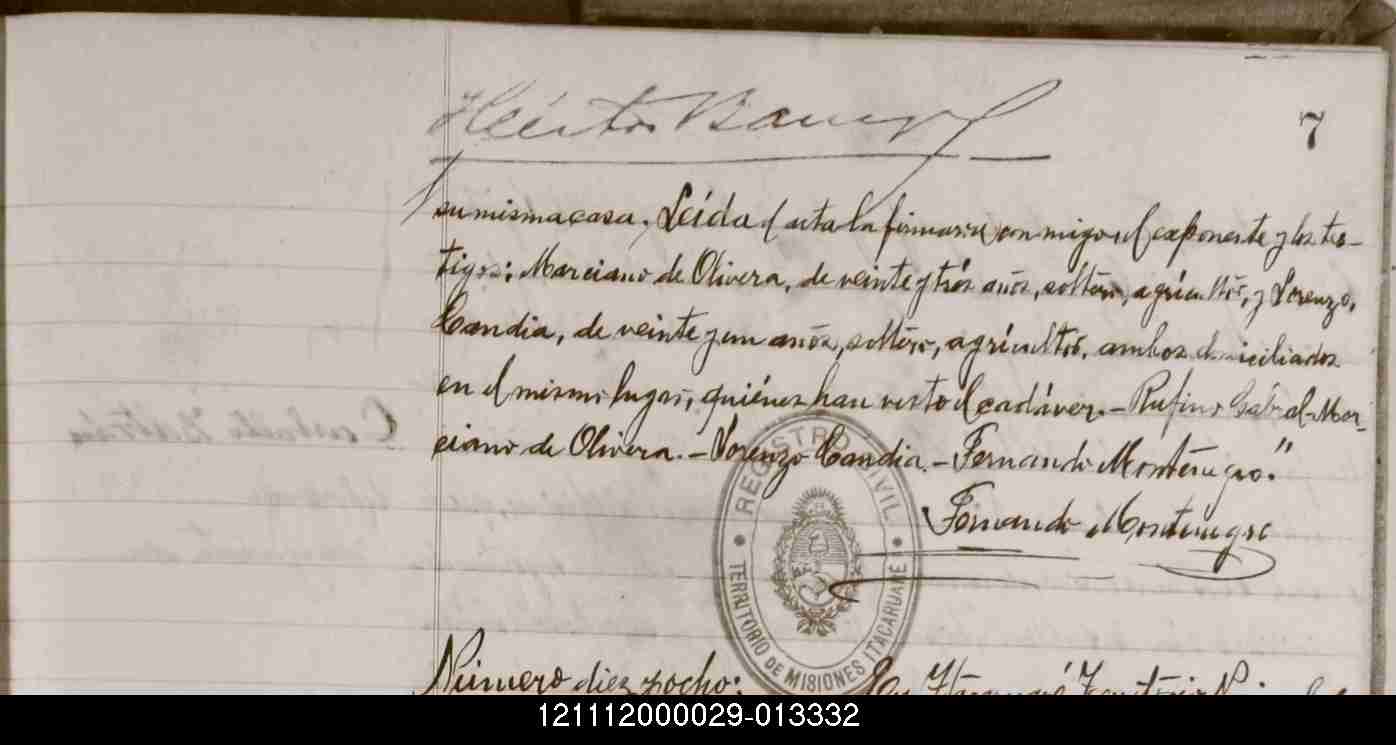 7
su misma casa. Leída el acta la firmaron conmigo el exponente y los tes-
tigos: Marciano de Olivera, de veinte y trés años, soltero, agricultor, y Lorenzo
Candia, de veinte y un años, soltero, agricultor, ambos domiciliados
en el mismo lugar, quiénes han visto el cadáver.- Rufino Cabral-Mar-
ciano de Olivera.- Lorenzo Candia.- Fernando Montenegro."
Fernando Montenegro
REGISTRO CIVIL
TERRITORIO DE MISIONES ITACARUARE
Número diez y ocho: En Itacaruaré Territorio
121112000029-013332